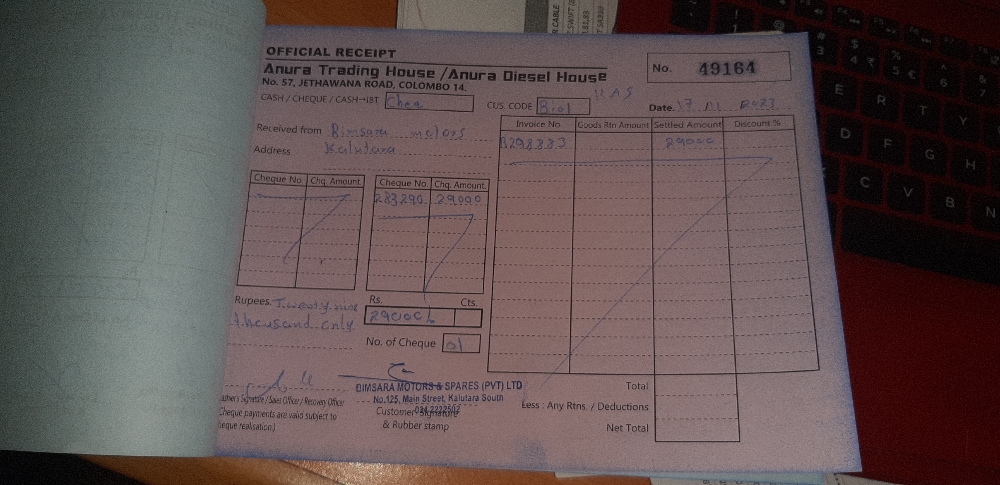 OFFICIAL RECEIPT
Anura Trading House / Anura Diesel House
No. 57, JETHAWANA ROAD, COLOMBO 14.
No. 49164
CASH / CHEQUE / CASH→IBT Cheq
CUS. CODE
Date. 2023
Received from Bimsara motors
Address Kalutara
Invoice No. Goods Rtn Amount Settled Amount Discount %
29000
Cheque No. Chq. Amount. Cheque No. Chq. Amount.
283290 29000
Rupees. Twenty nine
thousand only
Rs. Cts.
29000/-
No. of Cheque 01
BIMSARA MOTORS & SPARES (PVT) LTD
No.125, Main Street, Kalutara South
Signature / Sales Officer / Recovery Officer
Customer Signature
& Rubber stamp
Cheque payments are valid subject to
realisation)
Total
Less : Any Rtns. / Deductions
Net Total